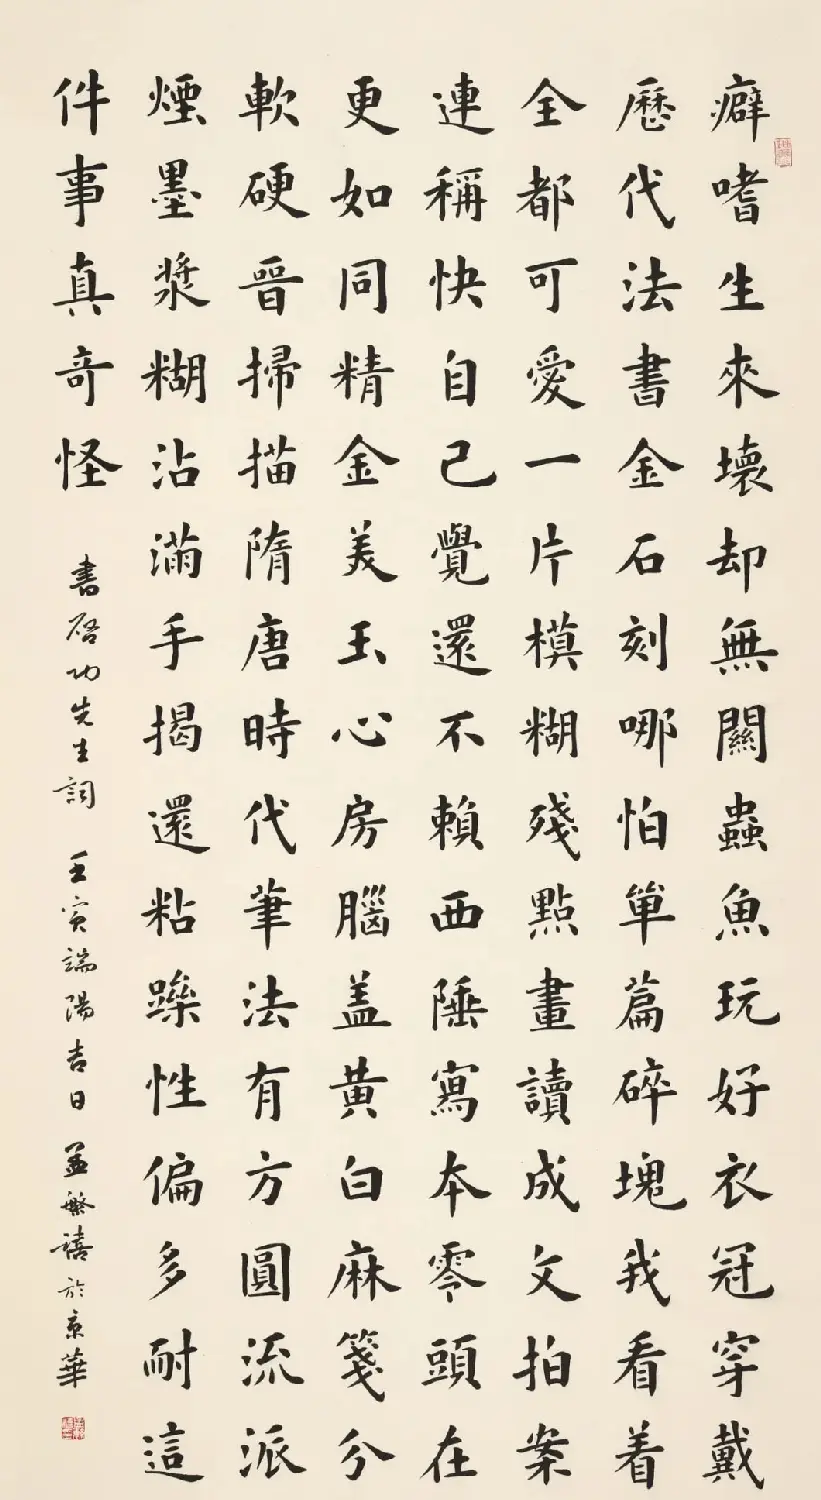 癖嗜生來壞却無關蟲魚玩好衣冠穿戴
歷代法書金石刻哪怕單篇碎塊我看着
全都可愛一片模糊殘點畫讀成文拍案
連稱快自己覺還不賴西陲寫本零頭在
更如同精金美玉心房腦蓋黃白麻箋分
軟硬晉掃描隋唐時代筆法有方圓流派
煙墨漿糊沾滿手揭還粘躁性偏多耐這
件事真奇怪
書啓功先生詞 壬寅端陽吉日 孟繁禧於京華